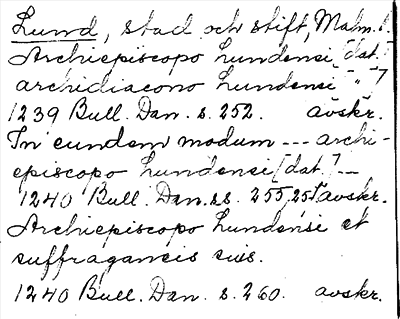 Lund, stad och stift, Malm. l.
Archiepiscopo Lundensi [dat.]
archidiacono Lundensi " "]
1239 Bull. Dan. s. 252. avskr.
In eundem modum --- archi-
episcopo Lundensi [dat.] --
1240 Bull. Dan. ss. 255, 257 avskr.
Archiepiscopo Lundensi et
suffraganeis suis.
1240 Bull. Dan. s. 260. avskr.